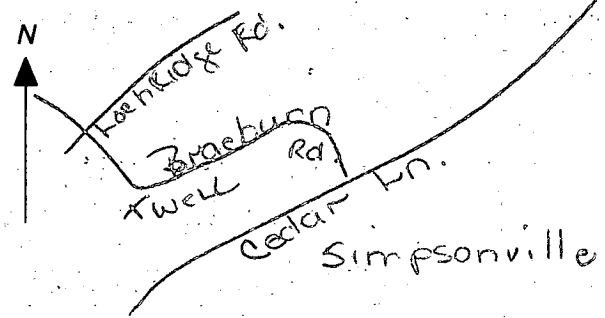 N
Lochridge Rd.
Braeburn Rd.
x well
Cedar Ln.
Simpsonville